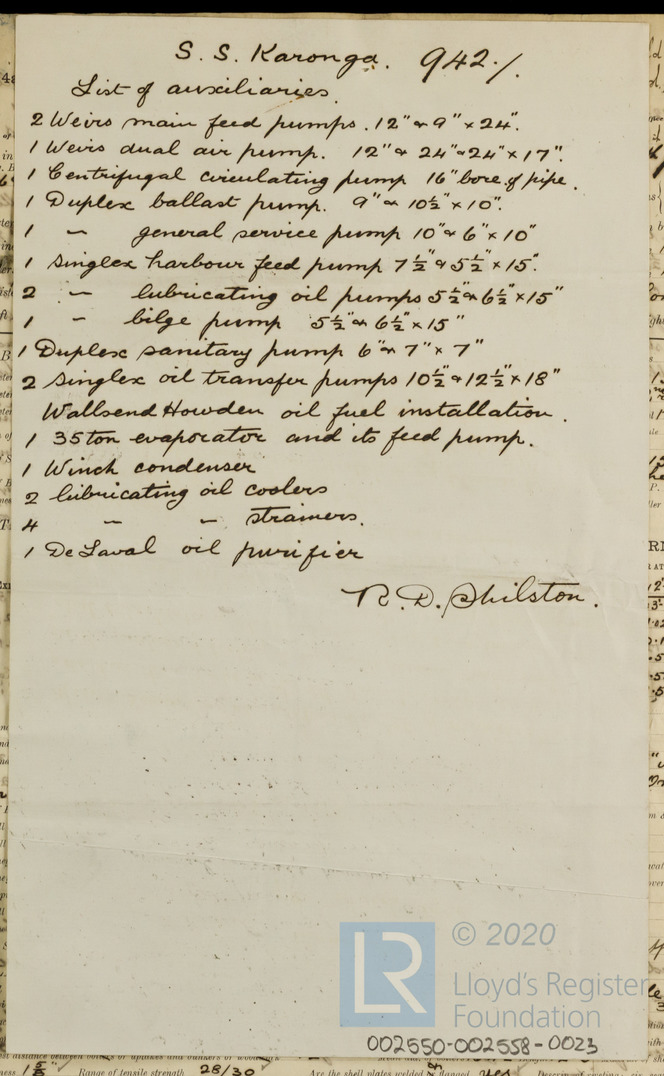 S. S. Karonga. 942./.
List of auxiliaries.
2 Weirs main feed pumps. 12" & 9" x 24".
1 Weirs dual air pump. 12" & 24" & 24" x 17".
1 Centrifugal circulating pump 16" bore of pipe.
1 Duplex ballast pump. 9" & 10½" x 10".
1 – general service pump 10" & 6" x 10"
1 Singlex harbour feed pump 7½" & 5½" x 15".
2 – lubricating oil pumps 5½" & 6½" x 15"
1 – bilge pump 5½" & 6½" x 15"
1 Duplex sanitary pump 6" & 7" x 7"
2 Singlex oil transfer pumps 10½" & 12½" x 18"
Wallsend Howden oil fuel installation.
1 35 ton evaporator and its feed pump.
1 Winch condenser
2 lubricating oil coolers
4 – – strainers.
1 De Laval oil purifier
R. D. Shilston.
© 2020
LR
Lloyd's Register
Foundation
002550-002558-0023
Range of tensile strength 28/30
Are the shell plates welded or flanged yes